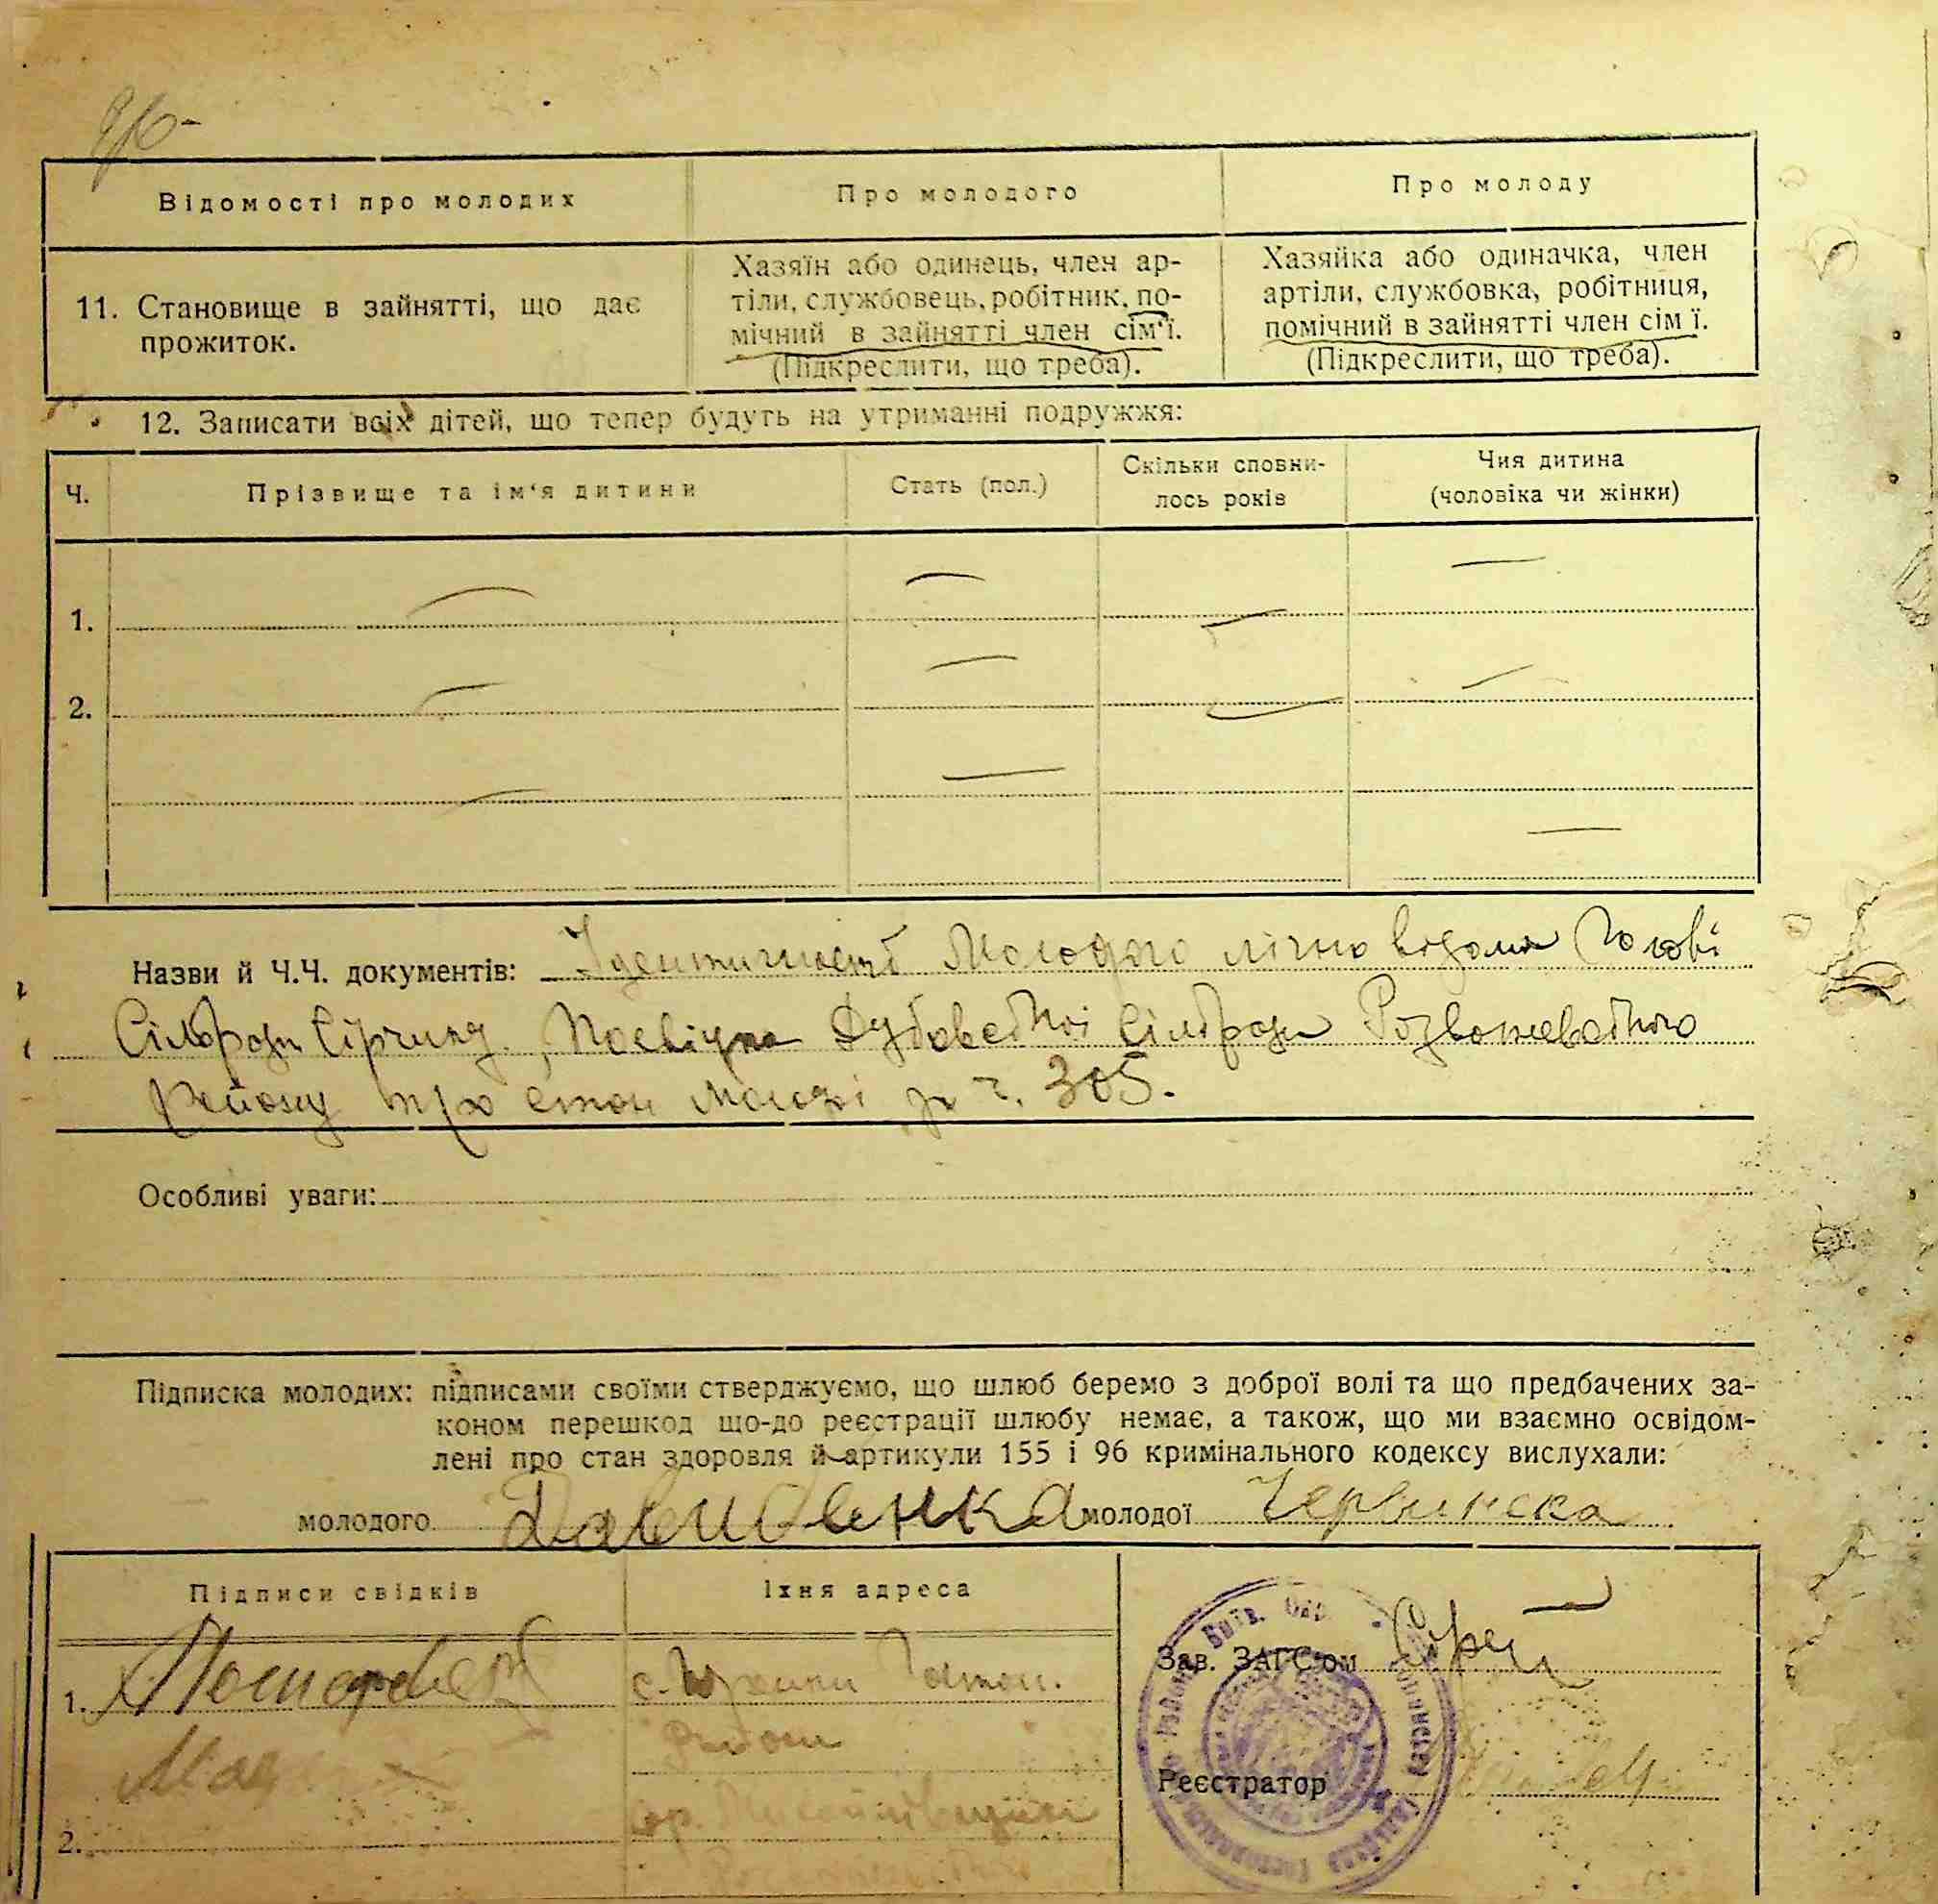 Відомості про молодих
Про молодого
Про молоду
11. Становище в зайнятті, що дає
прожиток.
Хазяїн або одинець, член ар-
тіли, службовець, робітник, по-
мічний в зайнятті член сім'ї.
(Підкреслити, що треба).
Хазяйка або одиначка, член
артіли, службовка, робітниця,
помічний в зайнятті член сім ї.
(Підкреслити, що треба).
12. Записати всіх дітей, що тепер будуть на утриманні подружжя:
Ч.
Прізвище та ім'я дитини
Стать (пол.)
Скільки сповни-
лось років
Чия дитина
(чоловіка чи жінки)
1.
2.
Назви й Ч.Ч. документів: Ідентичність Молодого лічно відома Голові
Сільради, Посвідка Сільради
Району про стан молодої за ч. 305.
Особливі уваги:
Підписка молодих: підписами своїми стверджуємо, що шлюб беремо з доброї волі та що предбачених за-
коном перешкод що-до реєстрації шлюбу немає, а також, що ми взаємно освідом-
лені про стан здоровля й артикули 155 і 96 кримінального кодексу вислухали:
молодого Давиденка молодої Червинска
Підписи свідків
Їхня адреса
Зав. ЗАГС'ом
1.
с.
Реєстратор
2.